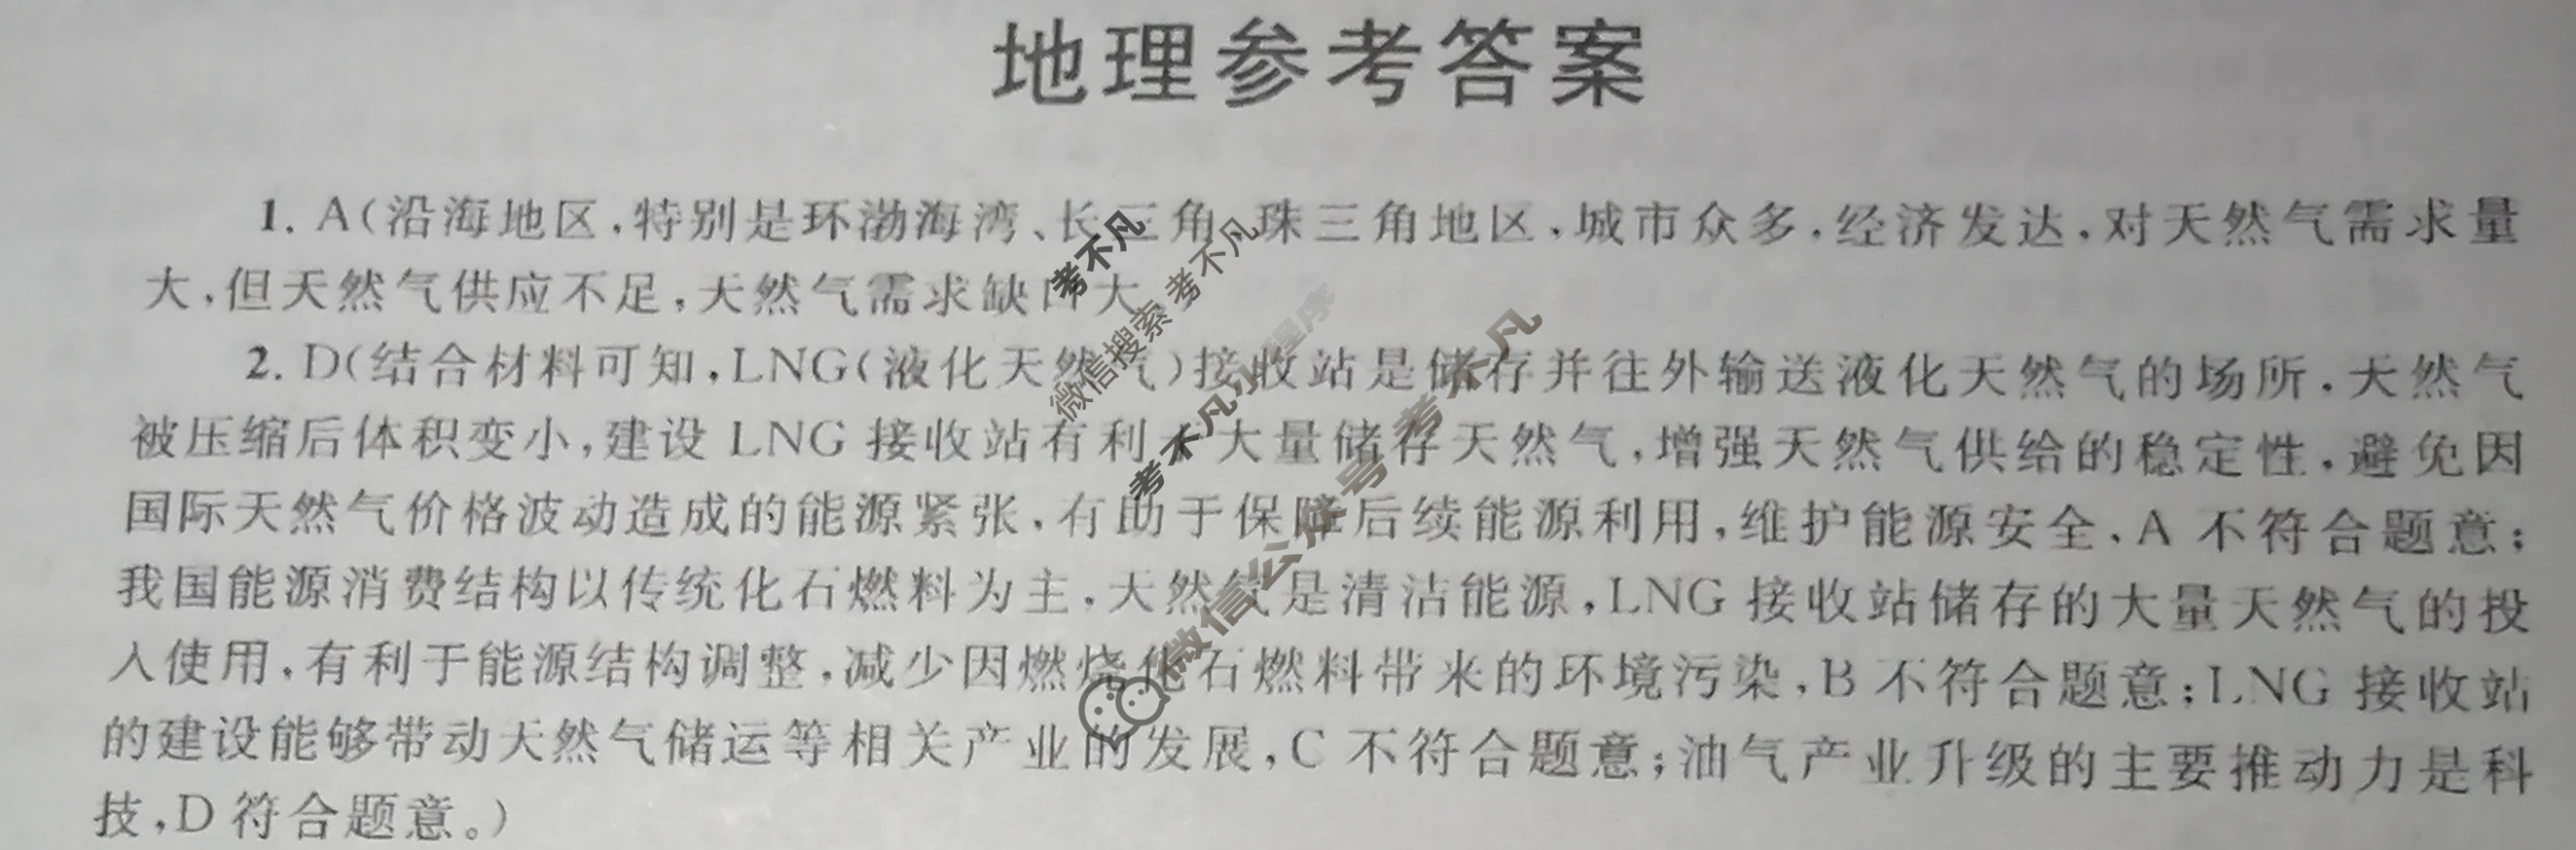 地理参考答案
1. A(沿海地区,特别是环渤海湾、长三角、珠三角地区,城市众多,经济发达,对天然气需求量
大,但天然气供应不足,天然气需求缺口大。
2. D(结合材料可知,LNG(液化天然气)接收站是储存并往外输送液化天然气的场所,天然气
被压缩后体积变小,建设 LNG 接收站有利于大量储存天然气,增强天然气供给的稳定性,避免因
国际天然气价格波动造成的能源紧张,有助于保障后续能源利用,维护能源安全,A 不符合题意;
我国能源消费结构以传统化石燃料为主,天然气是清洁能源,LNG 接收站储存的大量天然气的投
入使用,有利于能源结构调整,减少因燃烧化石燃料带来的环境污染,B 不符合题意;LNG 接收站
的建设能够带动天然气储运等相关产业的发展,C 不符合题意;油气产业升级的主要推动力是科
技,D 符合题意。)
考不凡
微信搜索 考不凡
考不凡小程序
微信公众号 考不凡